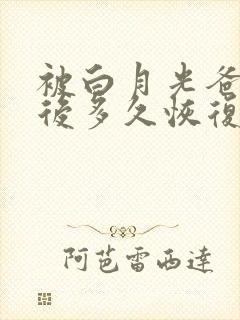 被白月光爸
後多久恢復
阿芭雷西達